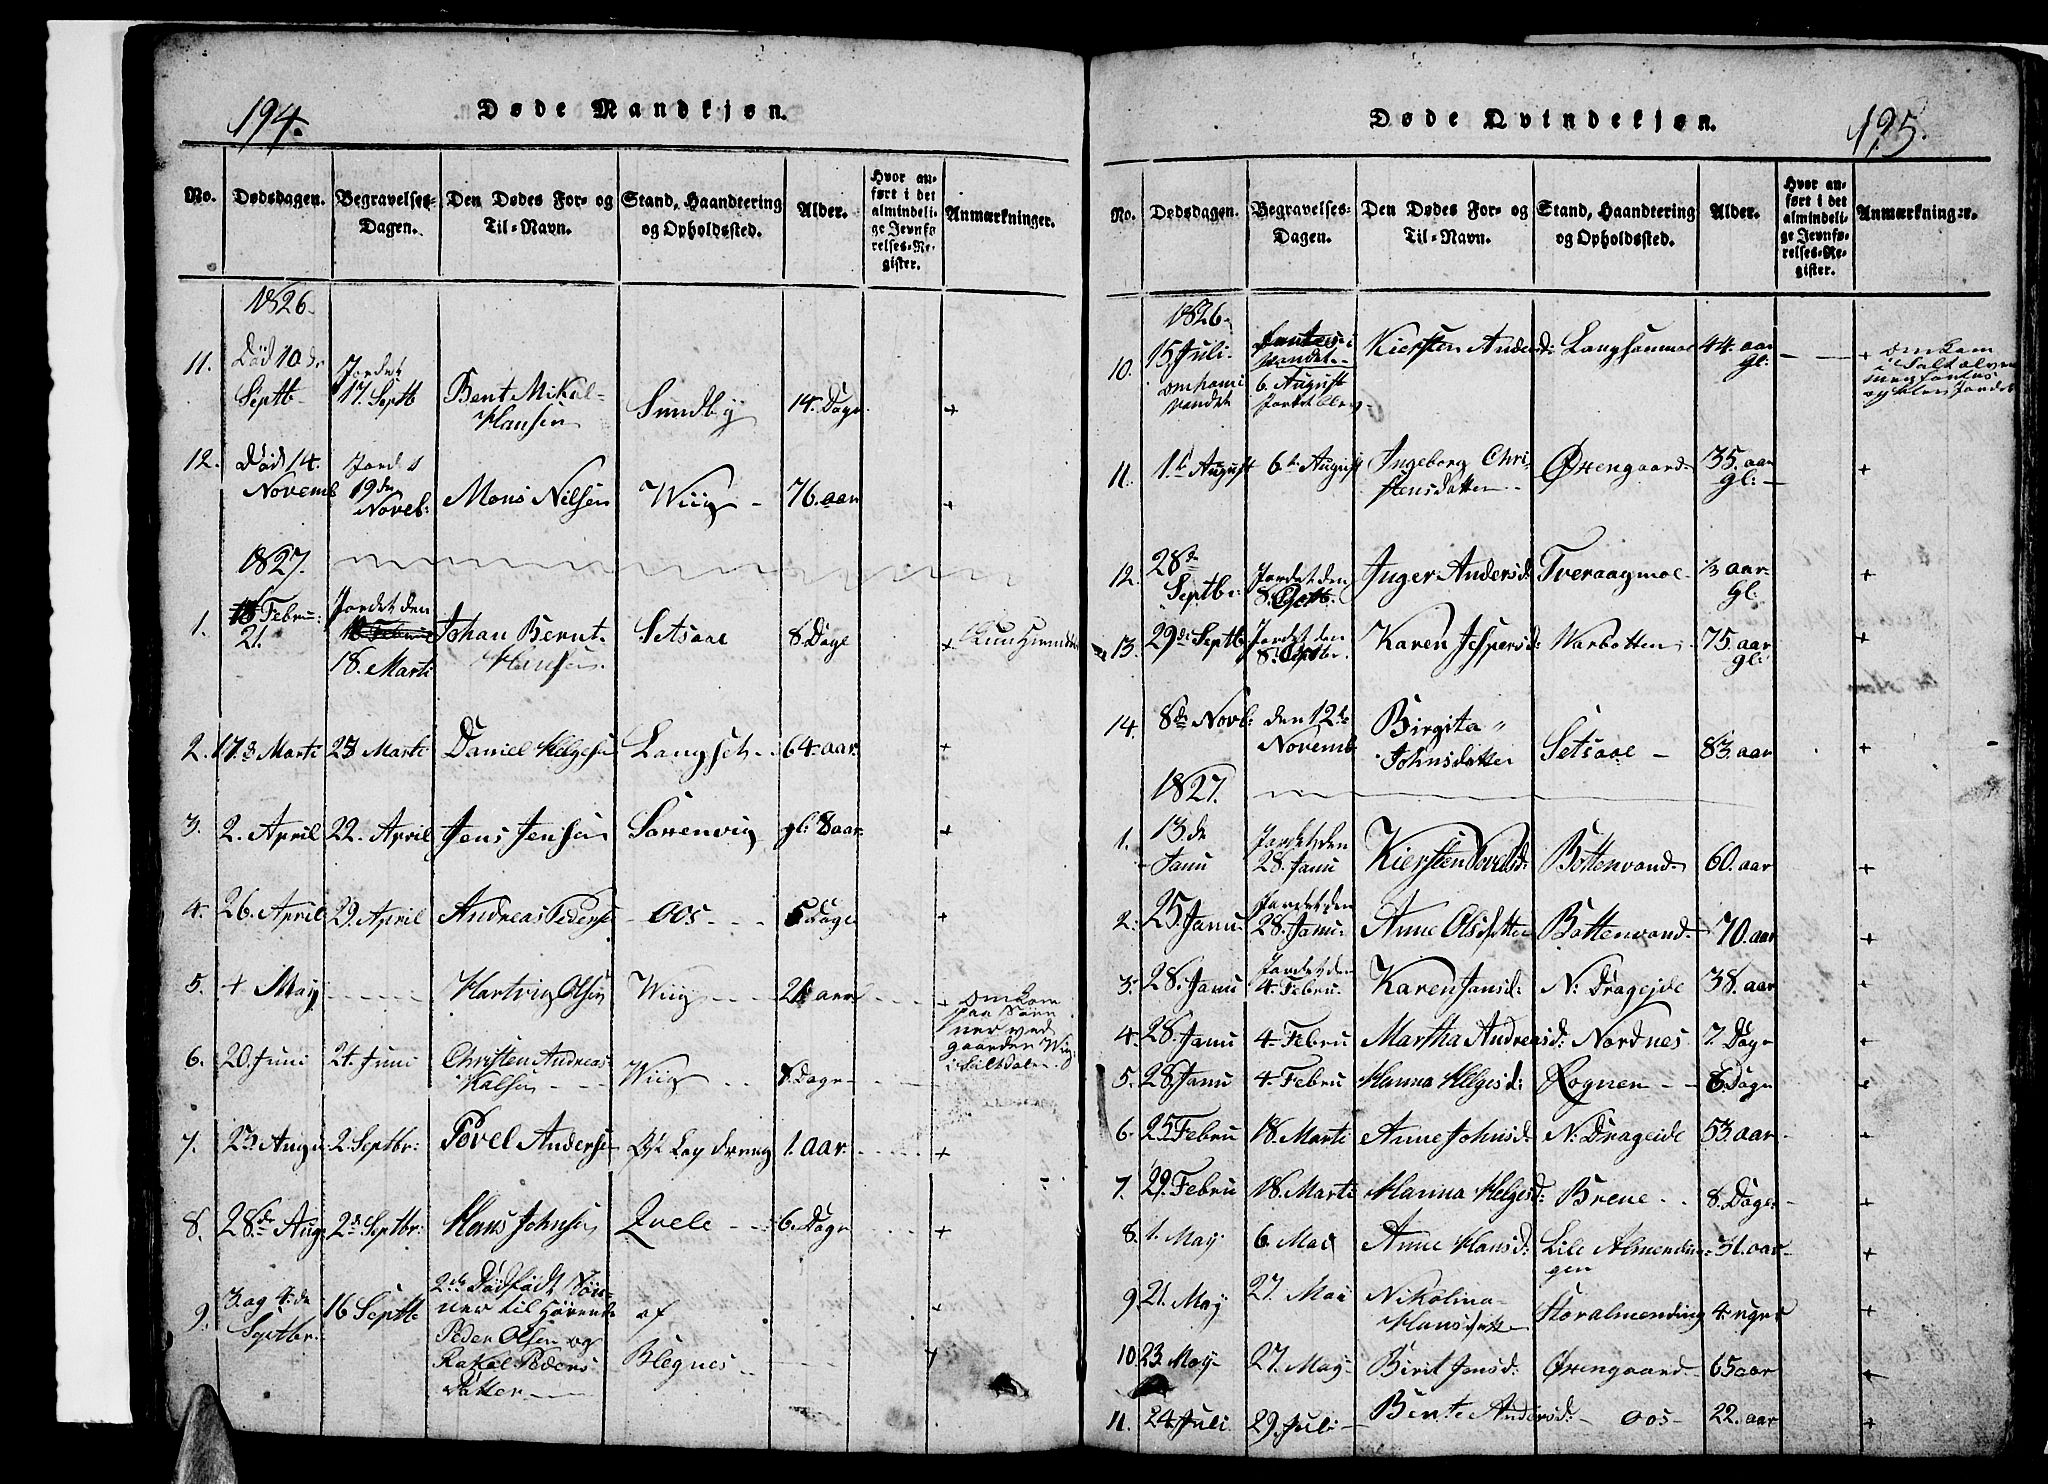 194.
Døde Mandkjøn.
No. Dødsdagen. Begravelses-Dagen. Den Dødes For- og Til-Navn. Stand, Haandtering og Opholdssted. Alder. Hvor anført i det almindelige Jevnførelses-Register. Anmærkninger.
1826.
11. Død 10de Septb. Jordet 17. Septb Bent Mikal Hansen Sundby 14. Dage +
12. Død 14. Novemb Jordet 19de Noveb: Mons Nilsen Wiig 76. aar +
1827.
1. Febru: 21. Jordet den 18. Marti Johan Bernt Hansen Setsaae 8 Dage +
2. 17de Marti 23 Marti Daniel Helgesen Langset 64. aar. +
3. 2. April 22. April Jens Jensen Sörrenvig gl: 8 aar. +
4. 26. April 29. April Andreas Peders: Oos 5 Dage +
5. + May Hartvig Olsen Wiig 21 aar + omkom paa ved gaarden Wiig i Saltdalen.
6. 20. Juni 24. Juni Christen Andreas Wiig 8. Dage
7. 23 Augu 2. Septbr: Povel Andersen 1. aar. +
8. 28.de Aug 2de Septbr: Hans Johnsen Qvele 6. Dage +
9. 3. og 4.de Septbr: 16 Septb 2.de Dødfødt Sönner til Peder Olsen og Rakel Peders Datter af Blegnes +
195.
Døde Qvindekjøn.
No. Dødsdagen. Begravelses-Dagen. Den Dødes For- og Til-Navn. Stand, Haandtering og Opholdssted. Alder. Hvor anført i det almindelige Jevnførelses-Register. Anmærkninger.
1826.
10. 15 Juli. omkom i Vandet 6. August Kiersten Andersd: Langsanmoe 44. aar gl: + omkom i Saltelven
11. 1.te August 6.te August Ingeborg Christensdatter Øxengaard 35. aar gl: +
12. 28de Septbr: Jordet den 8. Inger Andersd: Tveraagmoe 3 aar gl: +
13. 29de Septb Jordet den 8. Karen Jespersd: Warbotten 75. aar gl: +
14. 8de Novb: den 12te Novemb Birgita Johnsdatter Setsaae 83. aar +
1827.
1. 13de Janu Jordet den 28. Janu Kiersten Bottenvand 60. aar +
2. 25. Janu Jordet den 28. Janu: Anne Olsdatter Bottenvand 70. aar +
3. 28. Janu Jordet den 4. Febru. Karen Jansd: N: Drageide 38. aar +
4. 28. Janu 4. Febru Martha Andreasd: Nordnes 7. Dage +
5. 28 Janu 4. Febru Hanna Helgesd: Rognen 8 Dage +
6. 25 Febru 18. Marti Anne Johnsd: N: Drageide 53. aar +
7. 29. Febru 18. Marti Hanna Helgesd: Brene 8. Dage +
8. 1. May 6. Mai Anne Hansd: Lile Almendingen 31. aar +
9 21. May 27. Mai Nikolina Hansdatter Storalmending 4. uger +
10. 23. May 27. May Berit Jensd: Øxengaard 65 aar +
11. 24. Juli 29. Juli Bente Andersd: Oos 22. aar +